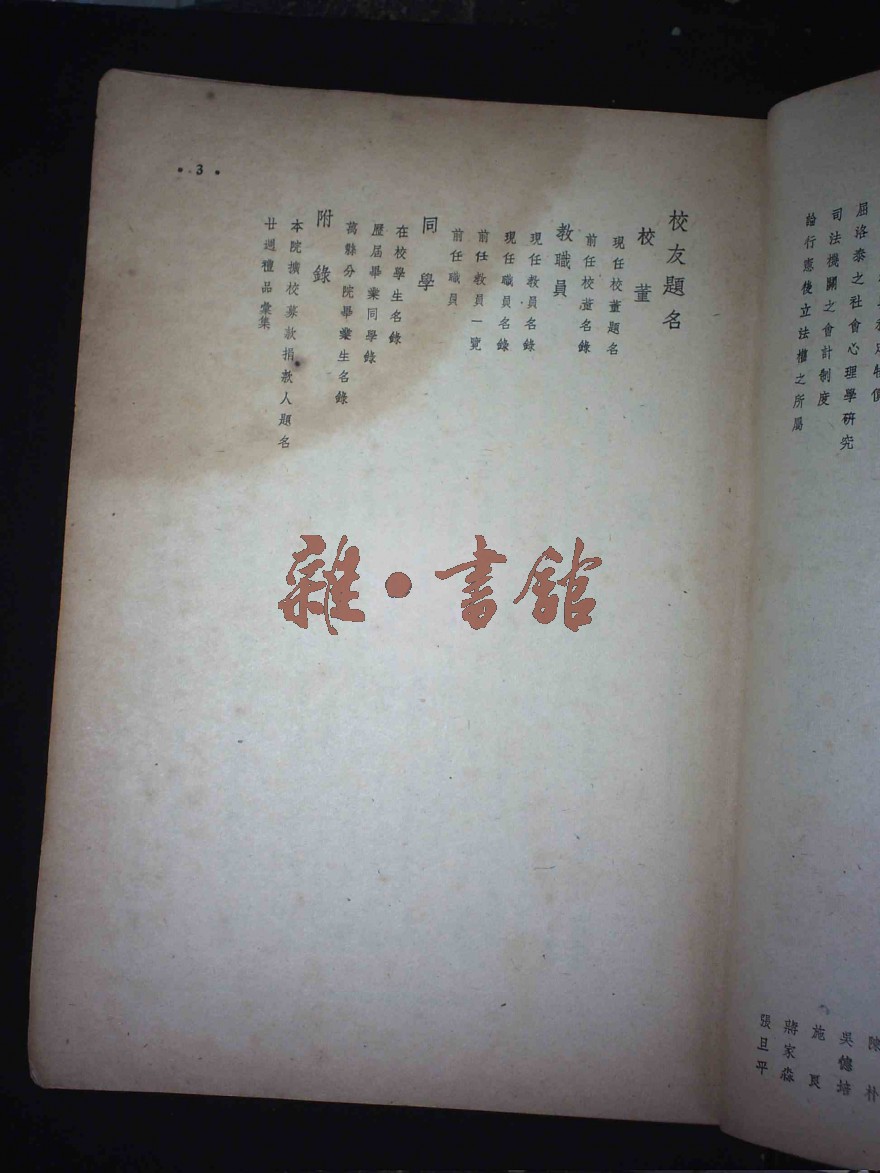 屈洛泰之社會心理學研究
吳德培
司法機關之會計制度
施良
論行憲後立法權之所屬
蔣家森
張旦平
校友題名
校董
現任校董題名
前任校董名錄
教職員
現任教員名錄
現任職員名錄
前任教員一覽
前任職員
同學
在校學生名錄
歷屆畢業同學錄
萬縣分院畢業生名錄
附錄
本院擴校募款捐款人題名
廿週禮品彙集
• 3 •
雜•書館